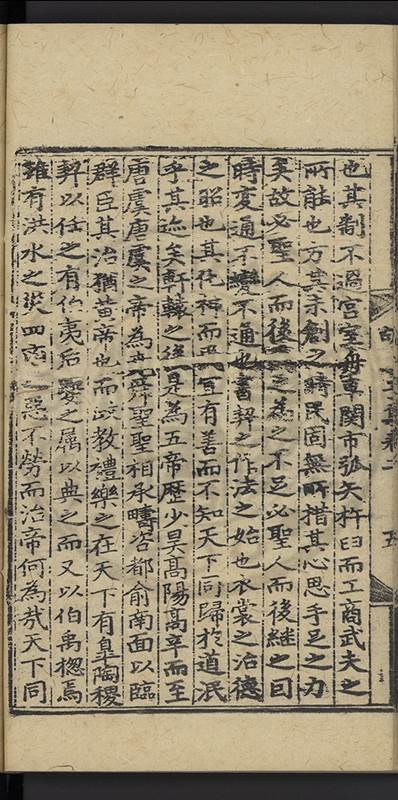 也其制不過宮室舟車關市弧矢杵臼而工商武夫之
所能也方其未創之時民固無所措其心思手足之力
矣故必聖人而後 之為之不足必聖人而後継之曰
時変通不變不通也書契之作法之始也衣裳之治德
之昭也其化神而 宜有善而不知天下同歸於道泯
乎其迹矣軒轅之後是為五帝歷少昊高陽高辛而至
唐虞唐虞之帝為 舜聖聖相承疇咨都俞南面以臨
群臣其治猶黃帝也而政教禮樂之在天下有皐陶稷
契以任之有伯夷后夔之属以典之而又以伯禹揔焉
雖有洪水之災四 之惡不勞而治帝何為哉天下同
文集卷二
五